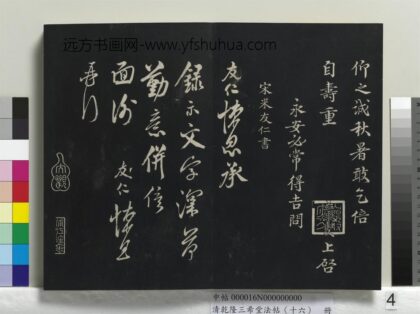 远方书画网-www.yfshuhua.com
仰之誠秋暑敢乞倍
自壽重
永安必常得吉問
上啓
宋米友仁書
友仁悚息承
録示文字深荷
勤意併俟
面謝 友仁悚息
申帖 000016N000000000
清乾隆三希堂法帖（十六） 册
4